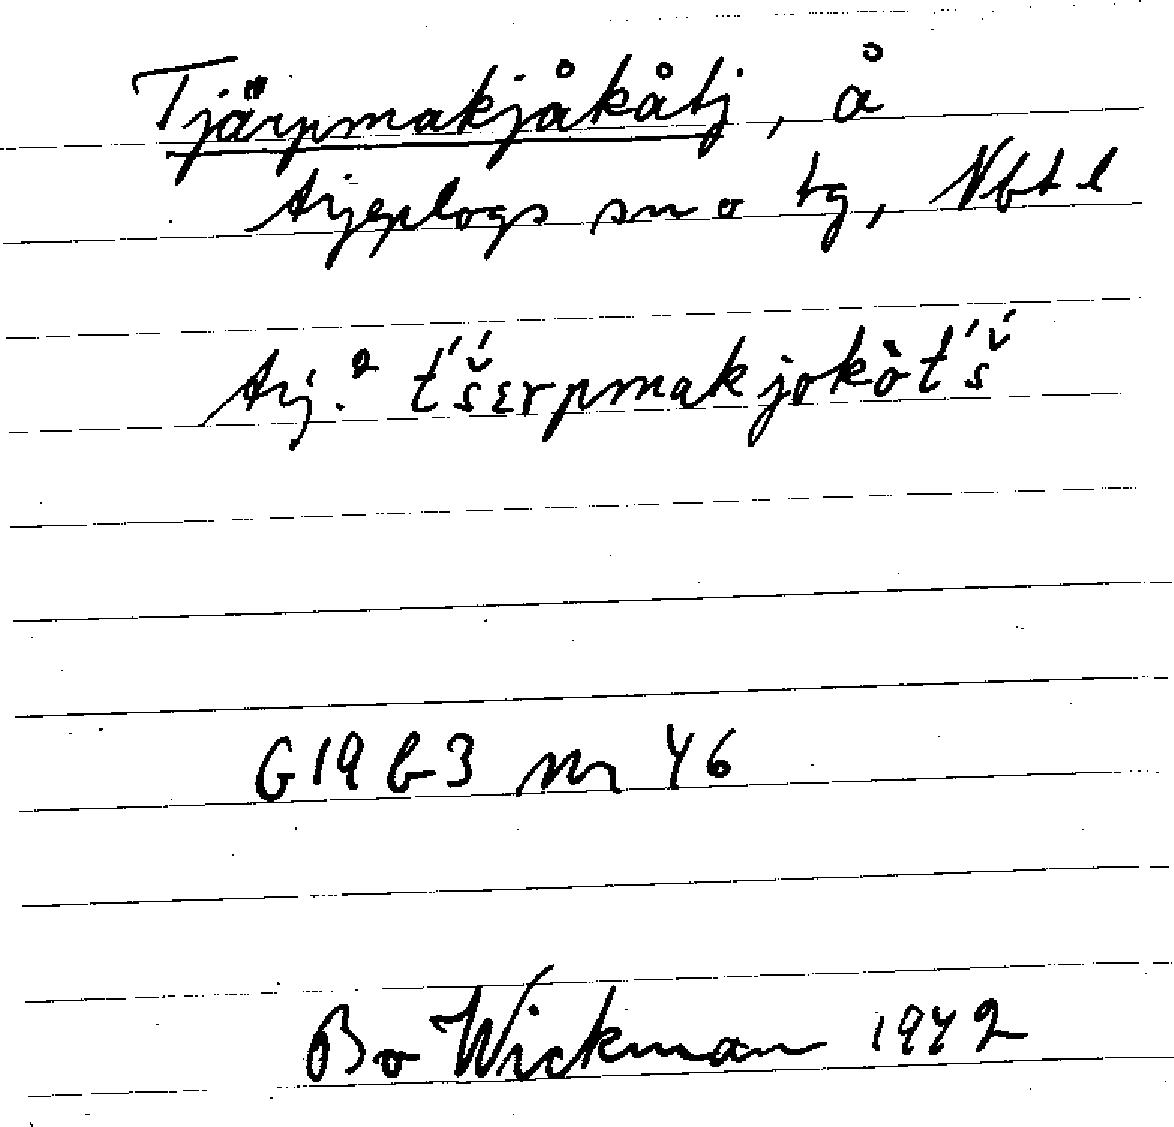 Tjärpmakjåkåtj, å
Arjeplogs sn o tg, Nbt l
Arj.² t́š́ɛrpmakjokȯ̀t́š́
G19 b3 nr 46
Bo Wickman 1942